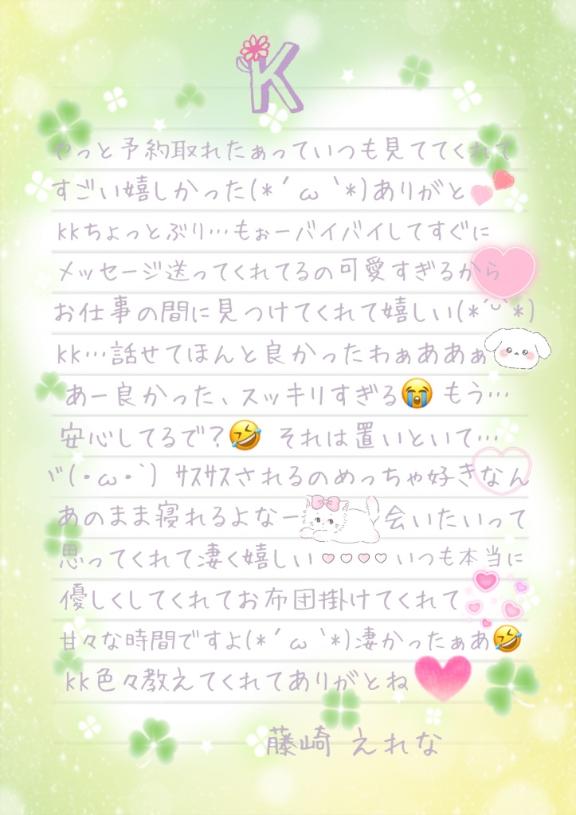 K
やっと予約取れたぁっていつも見ててくれて
すごい嬉しかった(*´ω`*)ありがと
kkちょっとぶり…もぉーバイバイしてすぐに
メッセージ送ってくれてるの可愛すぎるから
お仕事の間に見つけてくれて嬉しい(*´˘`*)
kk…話せてほんと良かったわぁああぁ
あー良かった、スッキリすぎる😭 もう…
安心してるで?🤣 それは置いといて…
ヾ(・ω・`) ｻｽｻｽされるのめっちゃ好きなん
あのまま寝れるよなー 会いたいって
思ってくれて凄く嬉しい♡♡♡♡いつも本当に
優しくしてくれてお布団掛けてくれて
甘々な時間ですよ(*´ω`*)凄かったぁあ🤣
kk色々教えてくれてありがとね
藤崎 えれな